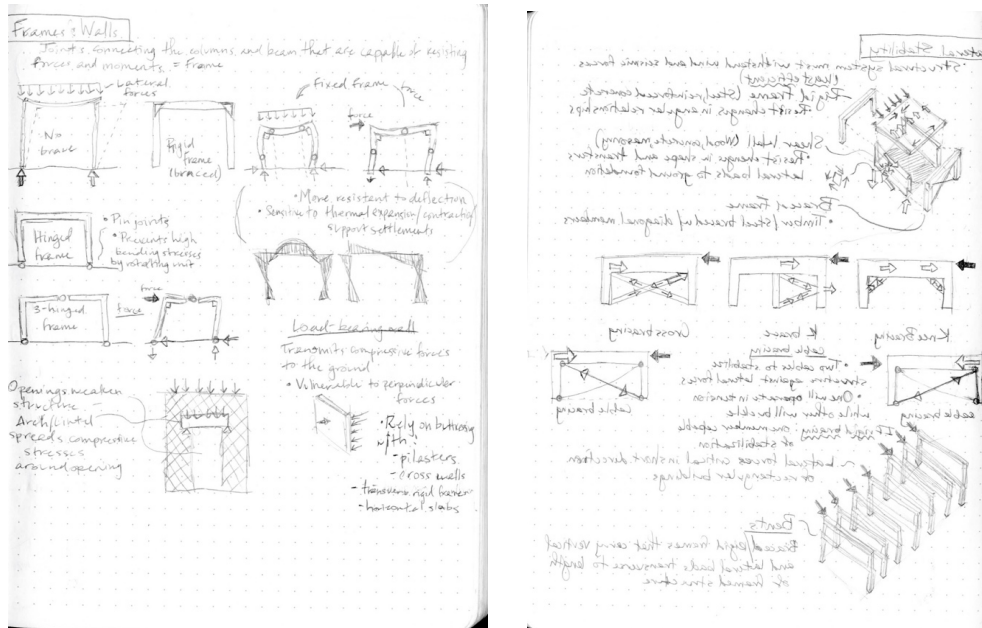 Frames & Walls
Joints connecting the columns and beam that are capable of resisting
forces and moments = Frame
Lateral
forces
No
brace
Rigid
frame
(braced)
Fixed Frame
force
force
• More resistant to deflection
• Sensitive to thermal expansion/contraction/
support settlements
Hinged
frame
• Pin joints
• Prevents high
bending stresses
by rotating unit
3-hinged
frame
force
force
Load-bearing wall
Transmits compressive forces
to the ground
• Vulnerable to perpendicular
forces
• Rely on
with:
- pilasters
- cross walls
- transverse rigid frames
- horizontal slabs
Openings weaken
structure
Arch/lintel
spreads compressive
stresses
around opening
Lateral Stability
• Structural system must withstand wind and seismic forces.
(Least efficient)
Rigid Frame (steel/reinforced concrete
Resist changes in angular relationships
Shear Wall (Wood, concrete, masonry)
• Resist changes in shape and transfers
lateral loads to ground foundation
Braced Frame
• Timber/steel braced w/ diagonal members
Knee Bracing
K brace
Cross bracing
cable bracing
• Two cables to stabilize
structure against lateral forces
• One will operate in tension
while other will buckle
If rigid bracing, one member capable
of stabilization
cable bracing
cable bracing
~ Lateral forces critical in short direction
on rectangular buildings
Bents
Braced/rigid frames that carry vertical
and lateral loads transverse to length
of framed structure